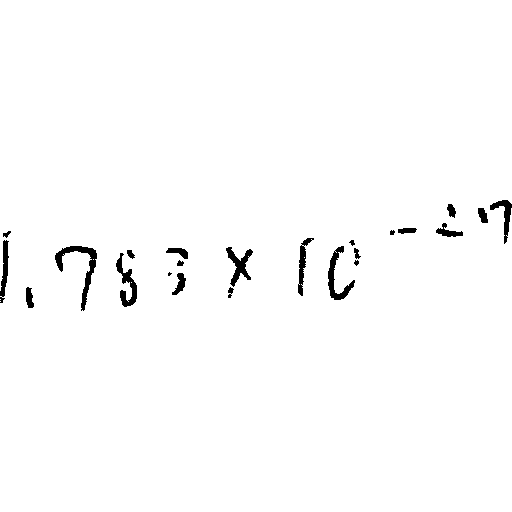 1.783 × 10^-27